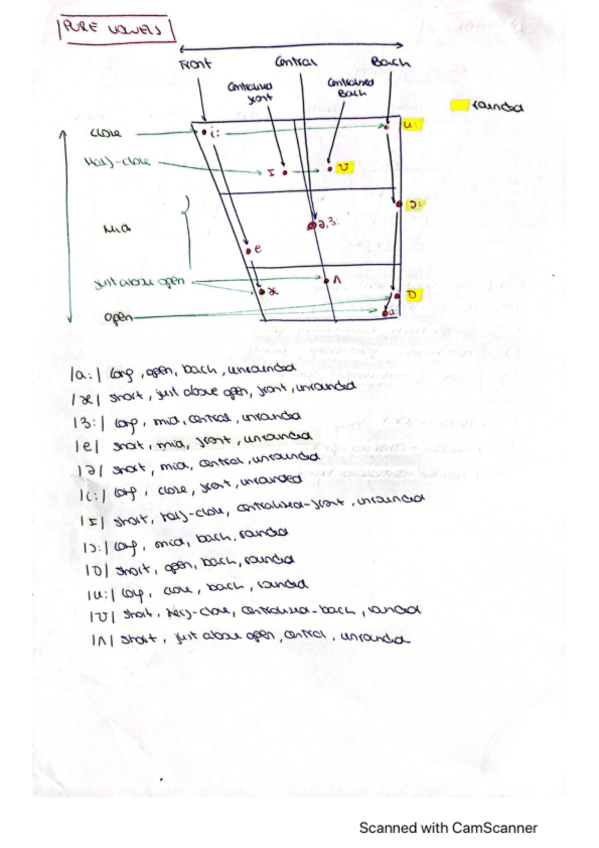 PURE VOWELS
Front Central Back
Centralized front
Centralized Back
rounded
close
i:
u:
Half-close
ɪ
ʊ
ɔ:
Mid
ə,ɜ:
e
just above open
æ
ʌ
ɒ
open
ɑ:
/ɑ:/ long, open, back, unrounded
/æ/ short, just above open, front, unrounded
/ɜ:/ long, mid, central, unrounded
/e/ short, mid, front, unrounded
/ə/ short, mid, central, unrounded
/i:/ long, close, front, unrounded
/ɪ/ short, half-close, centralized-front, unrounded
/ɔ:/ long, mid, back, rounded
/ɒ/ short, open, back, rounded
/u:/ long, close, back, rounded
/ʊ/ short, half-close, centralized-back, rounded
/ʌ/ short, just above open, central, unrounded
Scanned with CamScanner